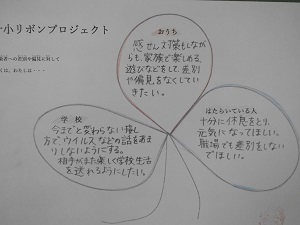 小リボンプロジェクト
への差別や偏見に対して
くは、わたしは・・・
おうち
感せん対策もしながら
も、家族で楽しめる
遊びなどをして、差別
や偏見をなくしてい
きたい。
学校
今までと変わらない接し
方で、ウイルスなどの話をあま
りしないようにする。
相手がまた楽しく学校生活
を送れるようにしたい。
はたらいている人
十分に休息をとり、
元気になってほしい。
職場でも差別をしない
でほしい。